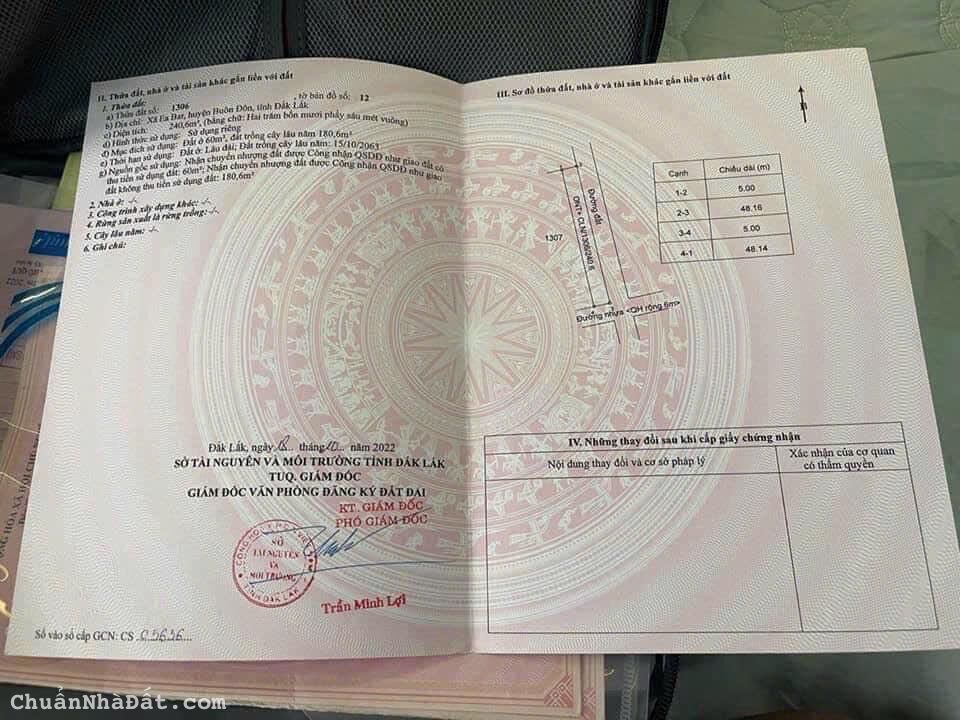 II. Thửa đất, nhà ở và tài sản khác gắn liền với đất
1. Thửa đất:
a) Thửa đất số: 1306 , tờ bản đồ số: 12
b) Địa chỉ: Xã Ea Bar, huyện Buôn Đôn, tỉnh Đắk Lắk
c) Diện tích: 240,6m², (bằng chữ: Hai trăm bốn mươi phẩy sáu mét vuông)
d) Hình thức sử dụng: Sử dụng riêng
đ) Mục đích sử dụng: Đất ở 60m², đất trồng cây lâu năm 180,6m²
e) Thời hạn sử dụng: Đất ở: Lâu dài; Đất trồng cây lâu năm: 15/10/2063
g) Nguồn gốc sử dụng: Nhận chuyển nhượng đất được Công nhận QSDĐ như giao đất có
thu tiền sử dụng đất: 60m²; Nhận chuyển nhượng đất được Công nhận QSDĐ như giao
đất không thu tiền sử dụng đất: 180,6m²
2. Nhà ở: -/-
3. Công trình xây dựng khác: -/-
4. Rừng sản xuất là rừng trồng: -/-
5. Cây lâu năm: -/-
6. Ghi chú:
Đắk Lắk, ngày 18 tháng 10 năm 2022
SỞ TÀI NGUYÊN VÀ MÔI TRƯỜNG TỈNH ĐẮK LẮK
TUQ. GIÁM ĐỐC
GIÁM ĐỐC VĂN PHÒNG ĐĂNG KÝ ĐẤT ĐAI
KT. GIÁM ĐỐC
PHÓ GIÁM ĐỐC
SỞ
TÀI NGUYÊN
VÀ
MÔI TRƯỜNG
TỈNH ĐẮK LẮK
Trần Minh Lợi
Số vào sổ cấp GCN: CS 05636
III. Sơ đồ thửa đất, nhà ở và tài sản khác gắn liền với đất
B
Cạnh Chiều dài (m)
1-2 5.00
2-3 48.16
3-4 5.00
4-1 48.14
Đường đất
ONT+CLN/1306/240.6
1307
Đường nhựa <QH rộng 6m>
IV. Những thay đổi sau khi cấp giấy chứng nhận
Nội dung thay đổi và cơ sở pháp lý
Xác nhận của cơ quan
có thẩm quyền
ChuẩnNhàĐất.com